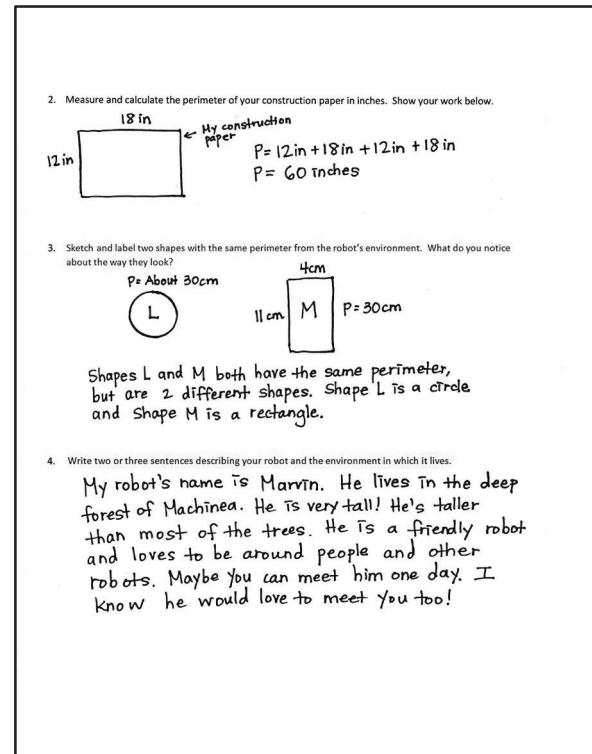 2. Measure and calculate the perimeter of your construction paper in inches. Show your work below.
18 in
← My construction
paper
12 in
P= 12in +18in +12in +18 in
P= 60 inches
3. Sketch and label two shapes with the same perimeter from the robot's environment. What do you notice
about the way they look?
4cm
P= About 30cm
L
11 cm
M
P=30cm
Shapes L and M both have the same perimeter,
but are 2 different shapes. Shape L is a circle
and Shape M is a rectangle.
4. Write two or three sentences describing your robot and the environment in which it lives.
My robot's name is Marvin. He lives in the deep
forest of Machinea. He is very tall! He's taller
than most of the trees. He is a friendly robot
and loves to be around people and other
robots. Maybe you can meet him one day. I
know he would love to meet you too!